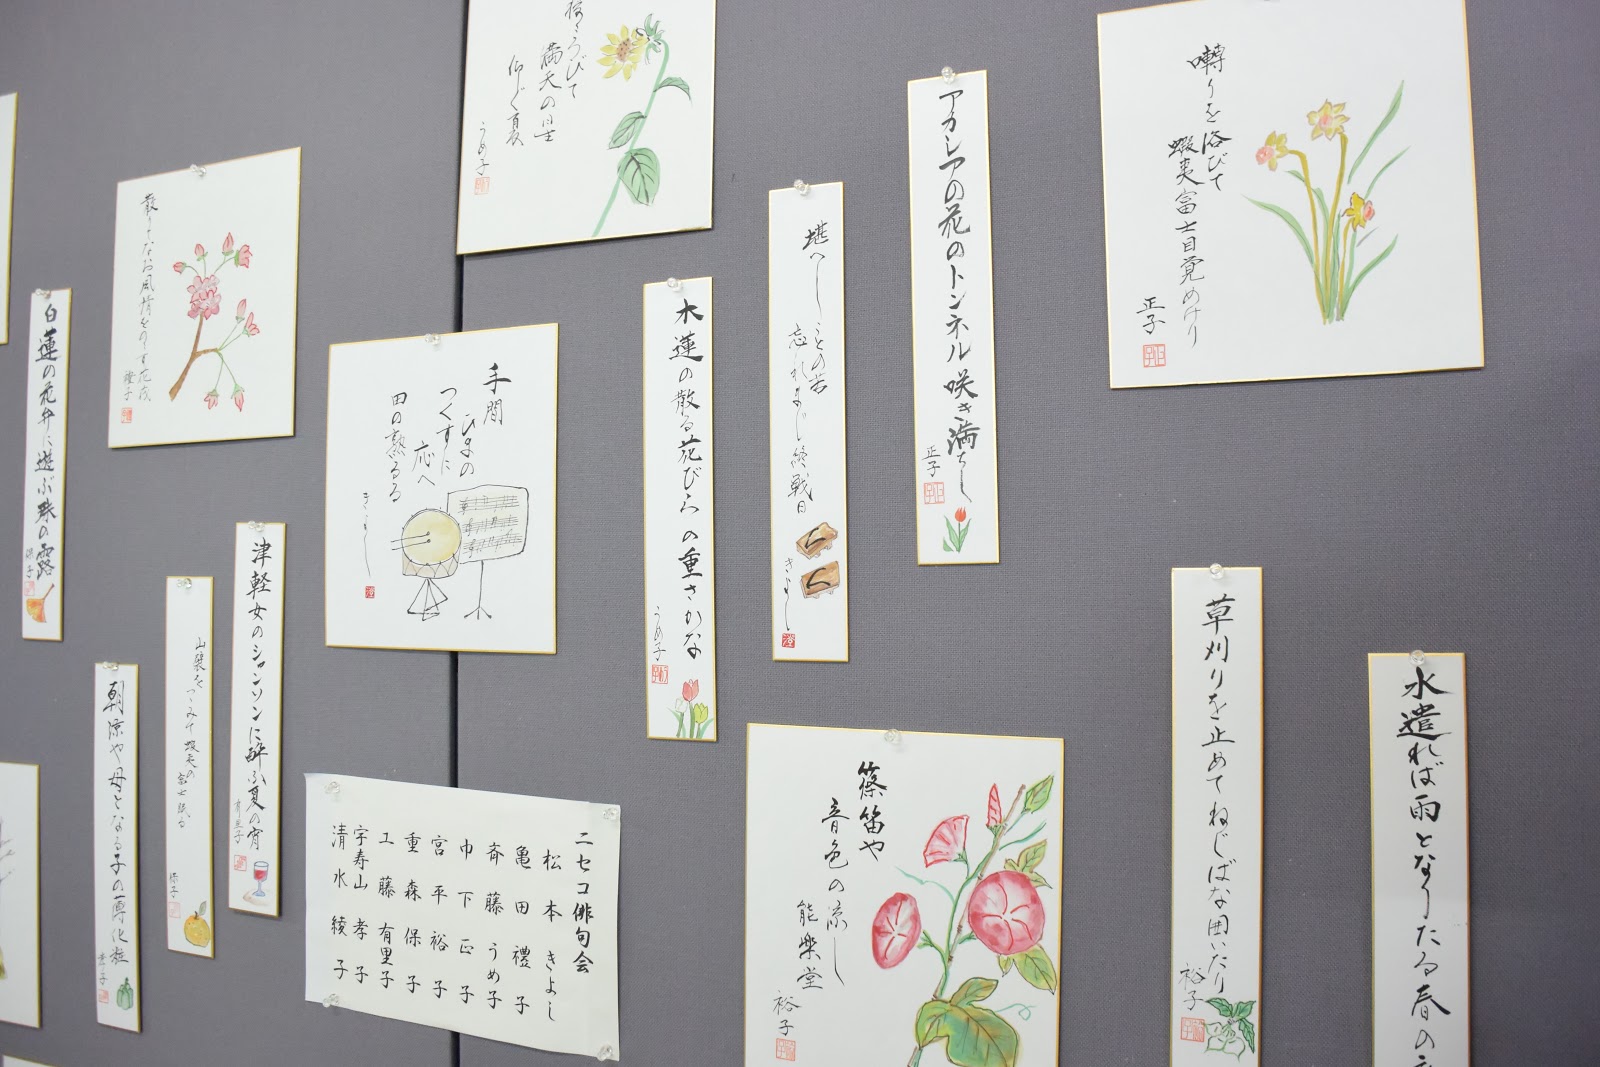 囀りを浴びて
蝦夷富士目覚めけり
正子
アカシアの花のトンネル咲き満ちし
正子
堪へしことの苦
忘れまじ終戦日
きよし
満天の星
仰ぐ夏
うめ子
木蓮の散る花びらの重さかな
うめ子
手間
ひまの
つくすに
応へ
田の熟るる
きよし
散りてなお風情をのす花茂
禮子
白蓮の花弁に遊ぶ珠の露
津軽女のシャンソンに酔ふ夏の宵
有里子
朝涼や母となる子の薄化粧
水遣れば雨となりたる春の
草刈りを止めてねじばな囲いたり
裕子
篠笛や
音色の涼し
能楽堂
裕子
ニセコ俳句会
松本きよし
亀田禮子
斉藤うめ子
巾下正子
宮平裕子
重森保子
工藤有里子
宇寿山孝子
清水綾子